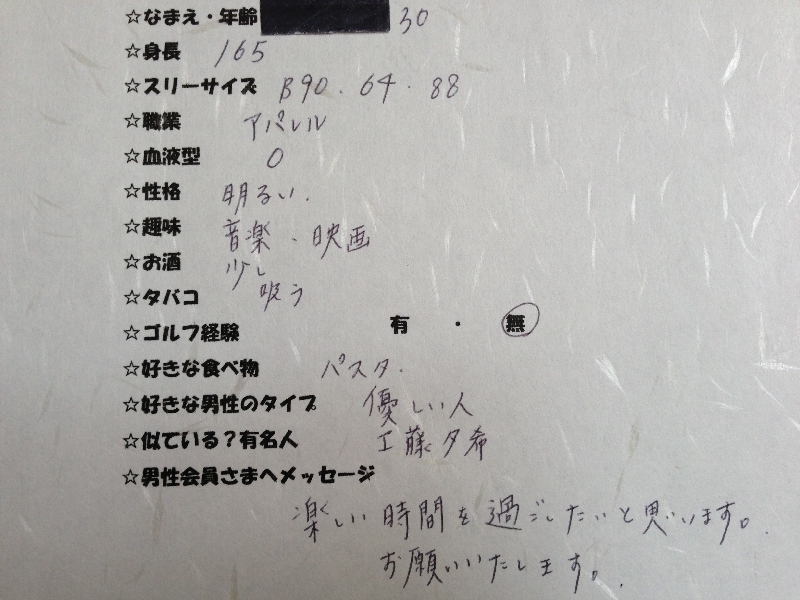 ☆なまえ・年齢 30
☆身長 165
☆スリーサイズ B90.64.88
☆職業 アパレル
☆血液型 O
☆性格 明るい.
☆趣味 音楽、映画
☆お酒 少し
☆タバコ 吸う
☆ゴルフ経験 有・無
☆好きな食べ物 パスタ.
☆好きな男性のタイプ 優しい人
☆似ている?有名人 工藤夕希
☆男性会員さまへメッセージ
楽しい時間を過ごしたいと思います。
お願いいたします。